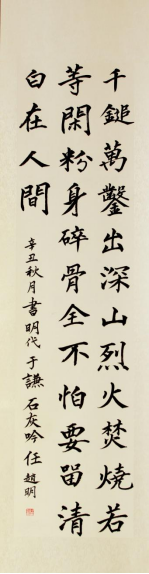 千鎚萬鑿出深山烈火焚燒若
等閑粉身碎骨全不怕要留清
白在人間
辛丑秋月書明代于謙石灰吟任趙明